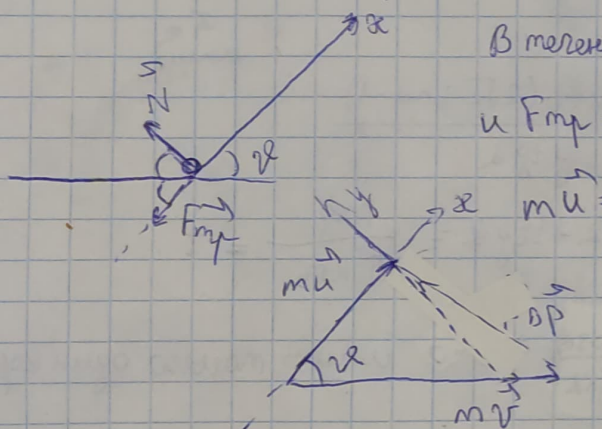 x
В течен
N
и Fтр
ϑ
Fтр
y
x
mu
mu =
ΔP
ϑ
mv